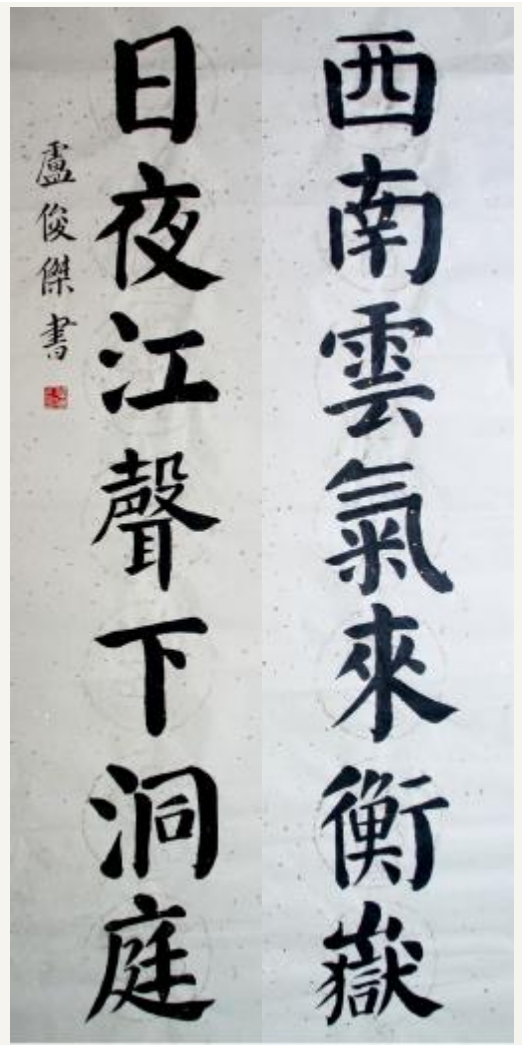 西南雲氣來衡嶽
日夜江聲下洞庭
盧俊傑書